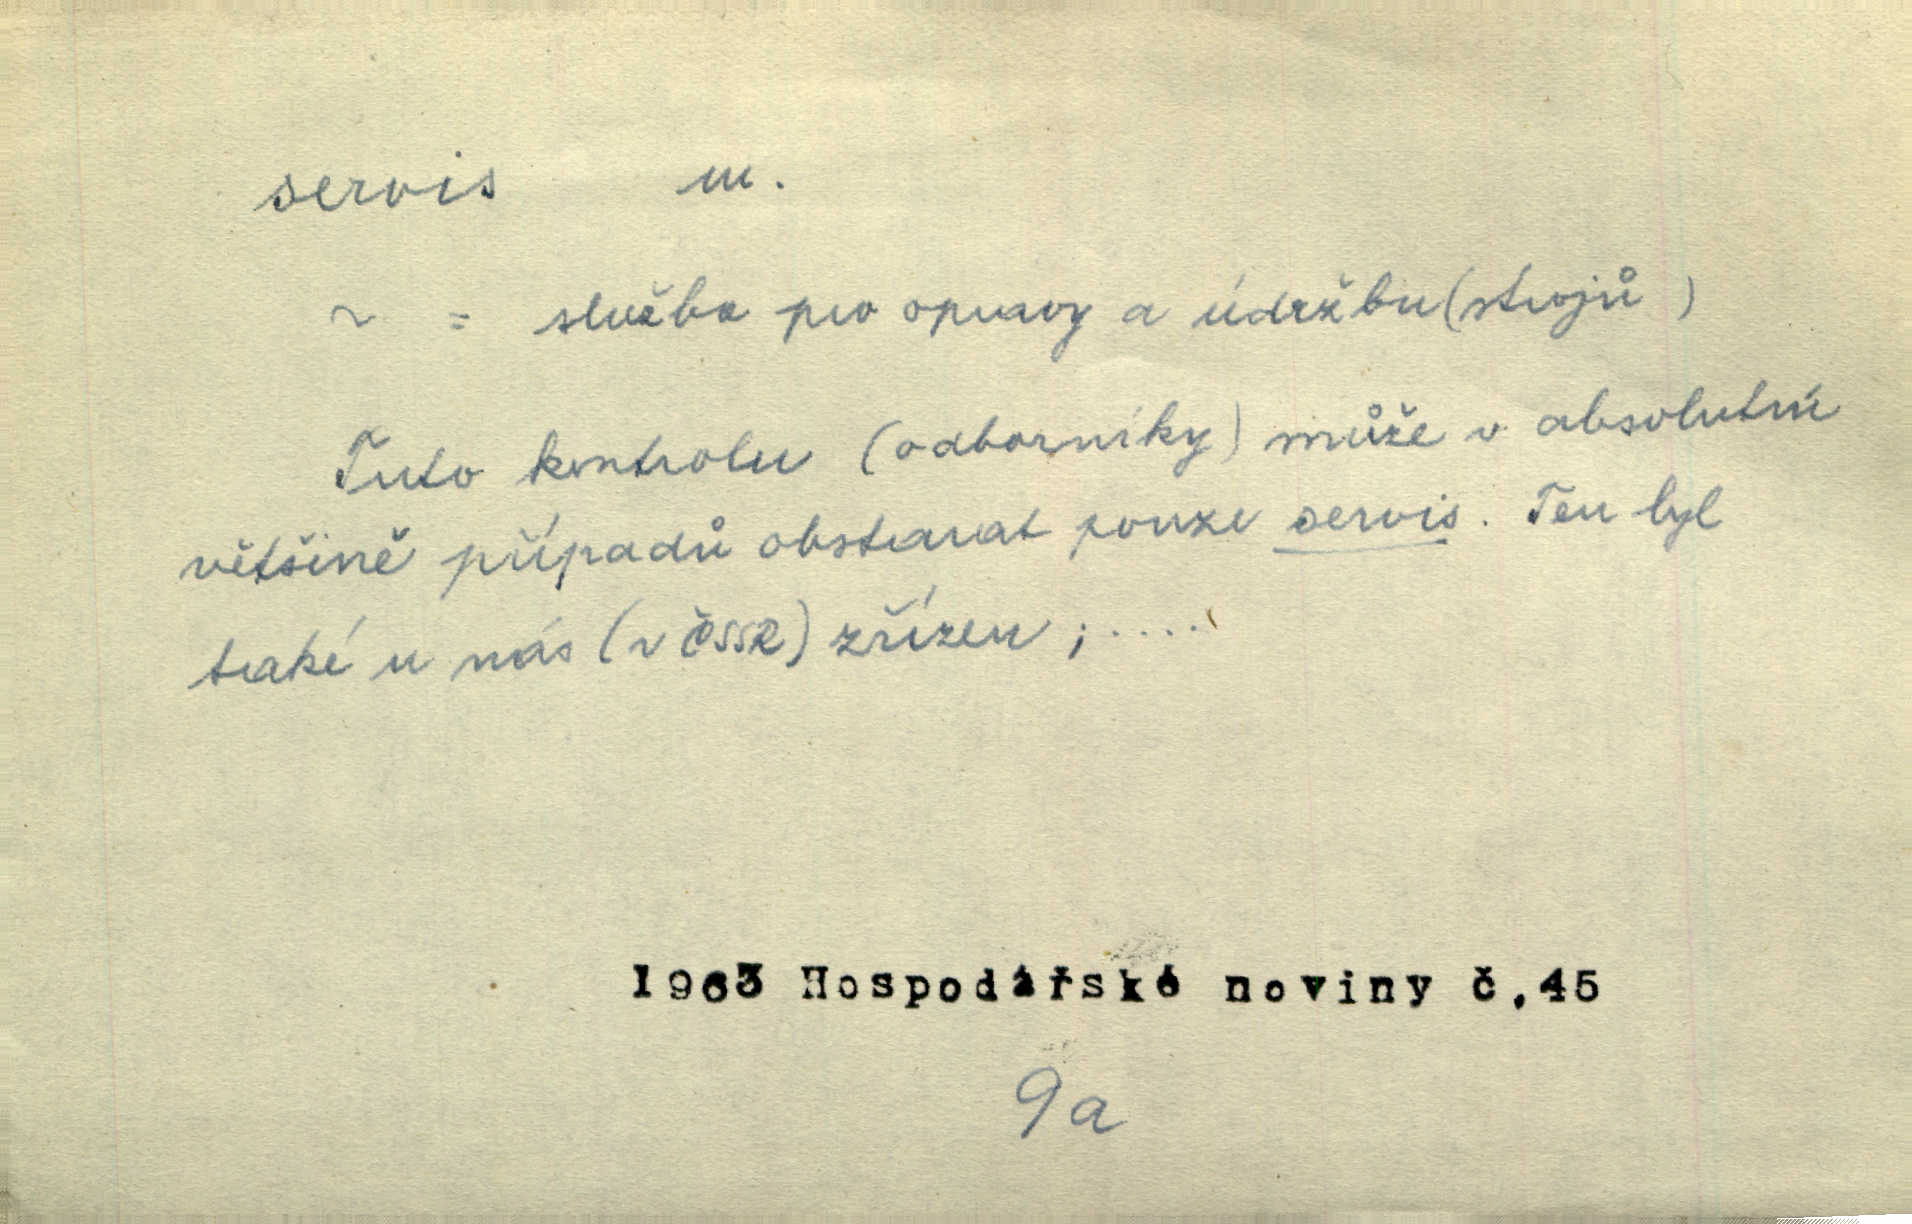 servis m.
~ = služba pro opravy a údržbu (strojů)
Tuto kontrolu (odborníky) může v absolutní
většině případů obstarat pouze servis. Ten byl
také u nás (v ČSSR) zřízen ; .....
1963 Hospodářské noviny č.45
9a